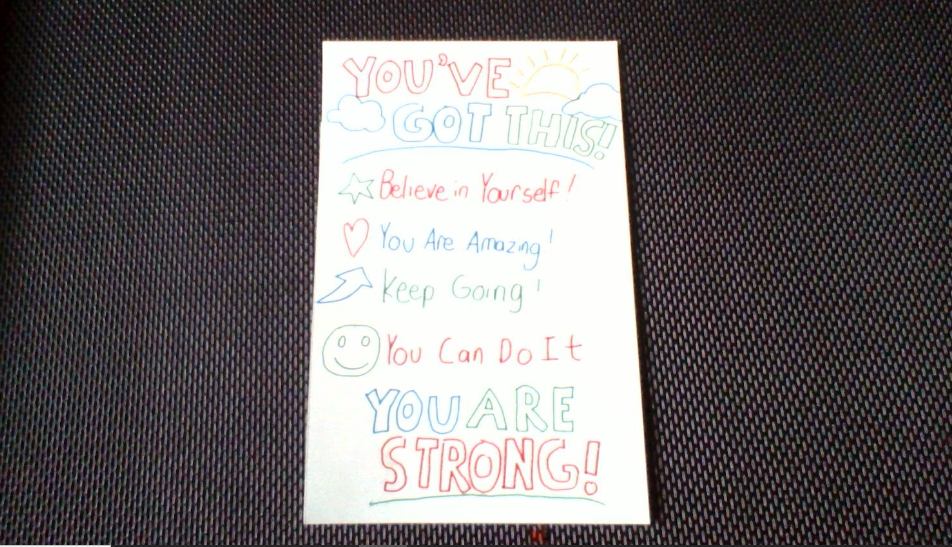 YOU'VE
GOT THIS!
Believe in Yourself!
You Are Amazing!
Keep Going!
You Can Do It
YOU ARE
STRONG!